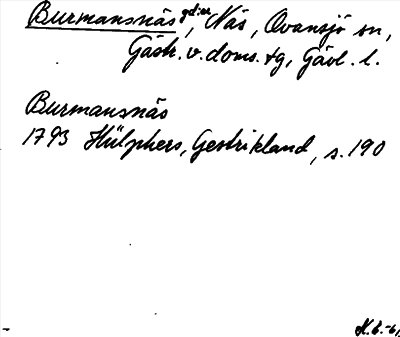 Burmansnäs gdar, Näs, Ovansjö sn,
Gästr. v. doms. tg, Gävl. l.
Burmansnäs
1793 Hülphers, Gestrikland, s. 190